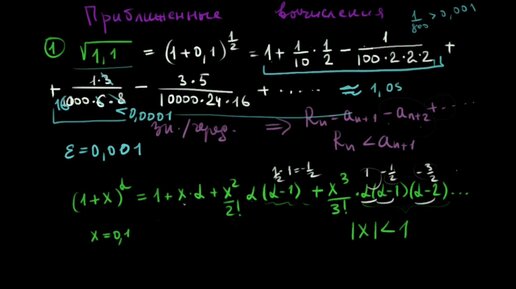 Приближенные вычисления
1/800 > 0,001
① √1,1 = (1+0,1)^(1/2) = 1 + 1/10 · 1/2 − 1/(100·2·2·2) +
+ 1·3/(1000·6·8) − 3·5/(10000·24·16) + ..... ≈ 1,05
16
< 0,0001
зн./черед. ⇒ Rn = an+1 − an+2 + .....
Rn < an+1
ε = 0,001
1/2 − 1 = −1/2
1 −1/2 −3/2
(1+x)^α = 1 + x·α + x²/2! α(α−1) + x³/3! · α(α−1)(α−2) ...
x = 0,1
|x| < 1